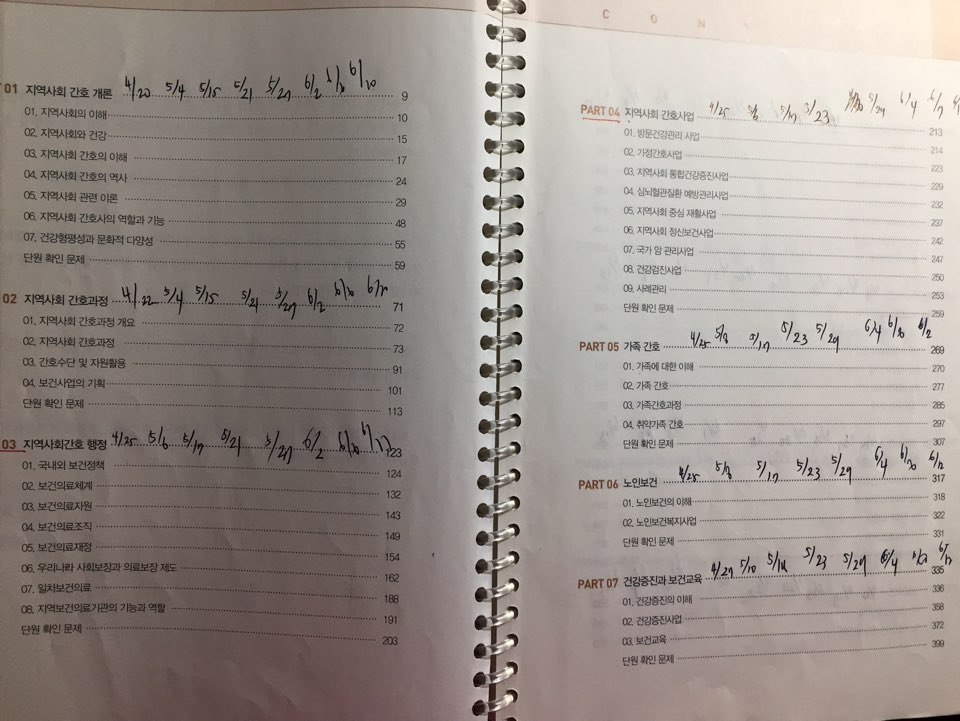 C O N
01 지역사회 간호 개론 4/20 5/4 5/15 5/21 5/27 6/2 6/10 9
01. 지역사회의 이해 10
02. 지역사회와 건강 15
03. 지역사회 간호의 이해 17
04. 지역사회 간호의 역사 24
05. 지역사회 관련 이론 29
06. 지역사회 간호사의 역할과 기능 48
07. 건강형평성과 문화적 다양성 55
단원 확인 문제 59
02 지역사회 간호과정 4/22 5/4 5/15 5/21 5/27 6/2 71
01. 지역사회 간호과정 개요 72
02. 지역사회 간호과정 73
03. 간호수단 및 자원활용 91
04. 보건사업의 기획 101
단원 확인 문제 113
03 지역사회간호 행정 4/25 5/6 5/17 5/21 5/27 6/2 123
01. 국내외 보건정책 124
02. 보건의료체계 132
03. 보건의료자원 143
04. 보건의료조직 149
05. 보건의료재정 154
06. 우리나라 사회보장과 의료보장 제도 162
07. 일차보건의료 188
08. 지역보건의료기관의 기능과 역할 191
단원 확인 문제 203
PART 04 지역사회 간호사업 4/25 5/17 5/23 5/29 6/4 213
01. 방문건강관리 사업 214
02. 가정간호사업 223
03. 지역사회 통합건강증진사업 229
04. 심뇌혈관질환 예방관리사업 232
05. 지역사회 중심 재활사업 237
06. 지역사회 정신보건사업 242
07. 국가 암 관리사업 247
08. 건강검진사업 250
09. 사례관리 253
단원 확인 문제 259
PART 05 가족 간호 4/25 5/8 5/17 5/23 5/29 6/4 269
01. 가족에 대한 이해 270
02. 가족 간호 277
03. 가족간호과정 285
04. 취약가족 간호 297
단원 확인 문제 307
PART 06 노인보건 4/25 5/8 5/17 5/23 5/29 6/4 6/12 317
01. 노인보건의 이해 318
02. 노인보건복지사업 322
단원 확인 문제 331
PART 07 건강증진과 보건교육 4/27 5/10 5/23 5/29 6/4 335
01. 건강증진의 이해 336
02. 건강증진사업 358
03. 보건교육 372
단원 확인 문제 399